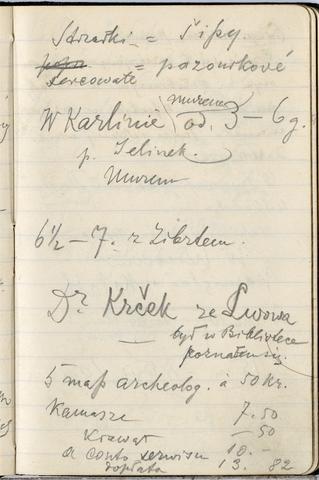 Strzałki = šípy.
sercowate = pazourkové
W Karlinie muzeum od 3 – 6 g.
p. Jelinek.
Muzeum
6 1/2 – 7. z Zibrtem.
Dr Krček ze Lwowa
był w Bibliotece
poznałem się.
5 map archeolog. à 50 kr.
Kamasze 7.50
Krawat –50
a conto serwisu 10.–
dopłata 13. 82